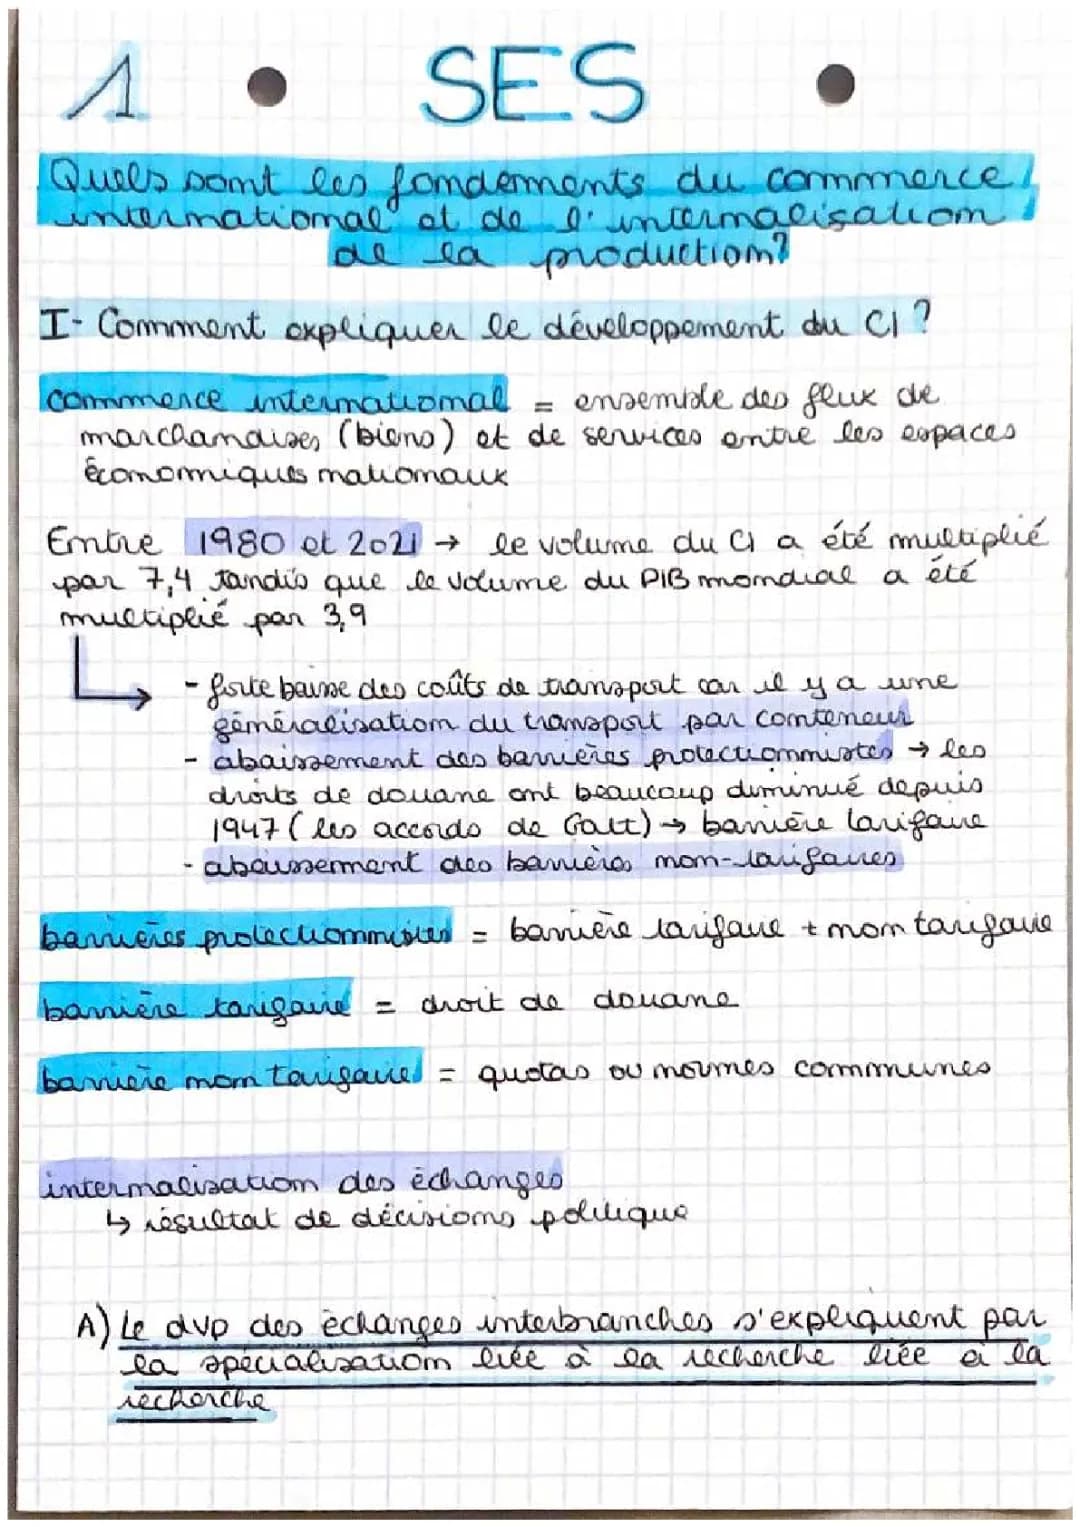 1 SES
Quels sont les fondements du commerce
international et de l'internalisation
de la production?
I- Comment expliquer le développement du CI ?
commerce international = ensemble des flux de
marchandises (biens) et de services entre les espaces
économiques nationaux
Entre 1980 et 2021 → le volume du CI a été multiplié
par 7,4 tandis que le volume du PIB mondial a été
multiplié par 3,9
- forte baisse des coûts de transport car il y a une
généralisation du transport par conteneur
- abaissement des barrières protectionnistes → les
droits de douane ont beaucoup diminué depuis
1947 (les accords de Gatt) → barrière tarifaire
- abaissement des barrières non-tarifaires
barrières protectionnistes = barrière tarifaire + non tarifaire
barrière tarifaire = droit de douane
barrière non tarifaire = quotas ou normes communes
internalisation des échanges
↳ résultat de décisions politique
A) Le dvp des échanges interbranches s'expliquent par
la spécialisation liée à la recherche liée à la
recherche